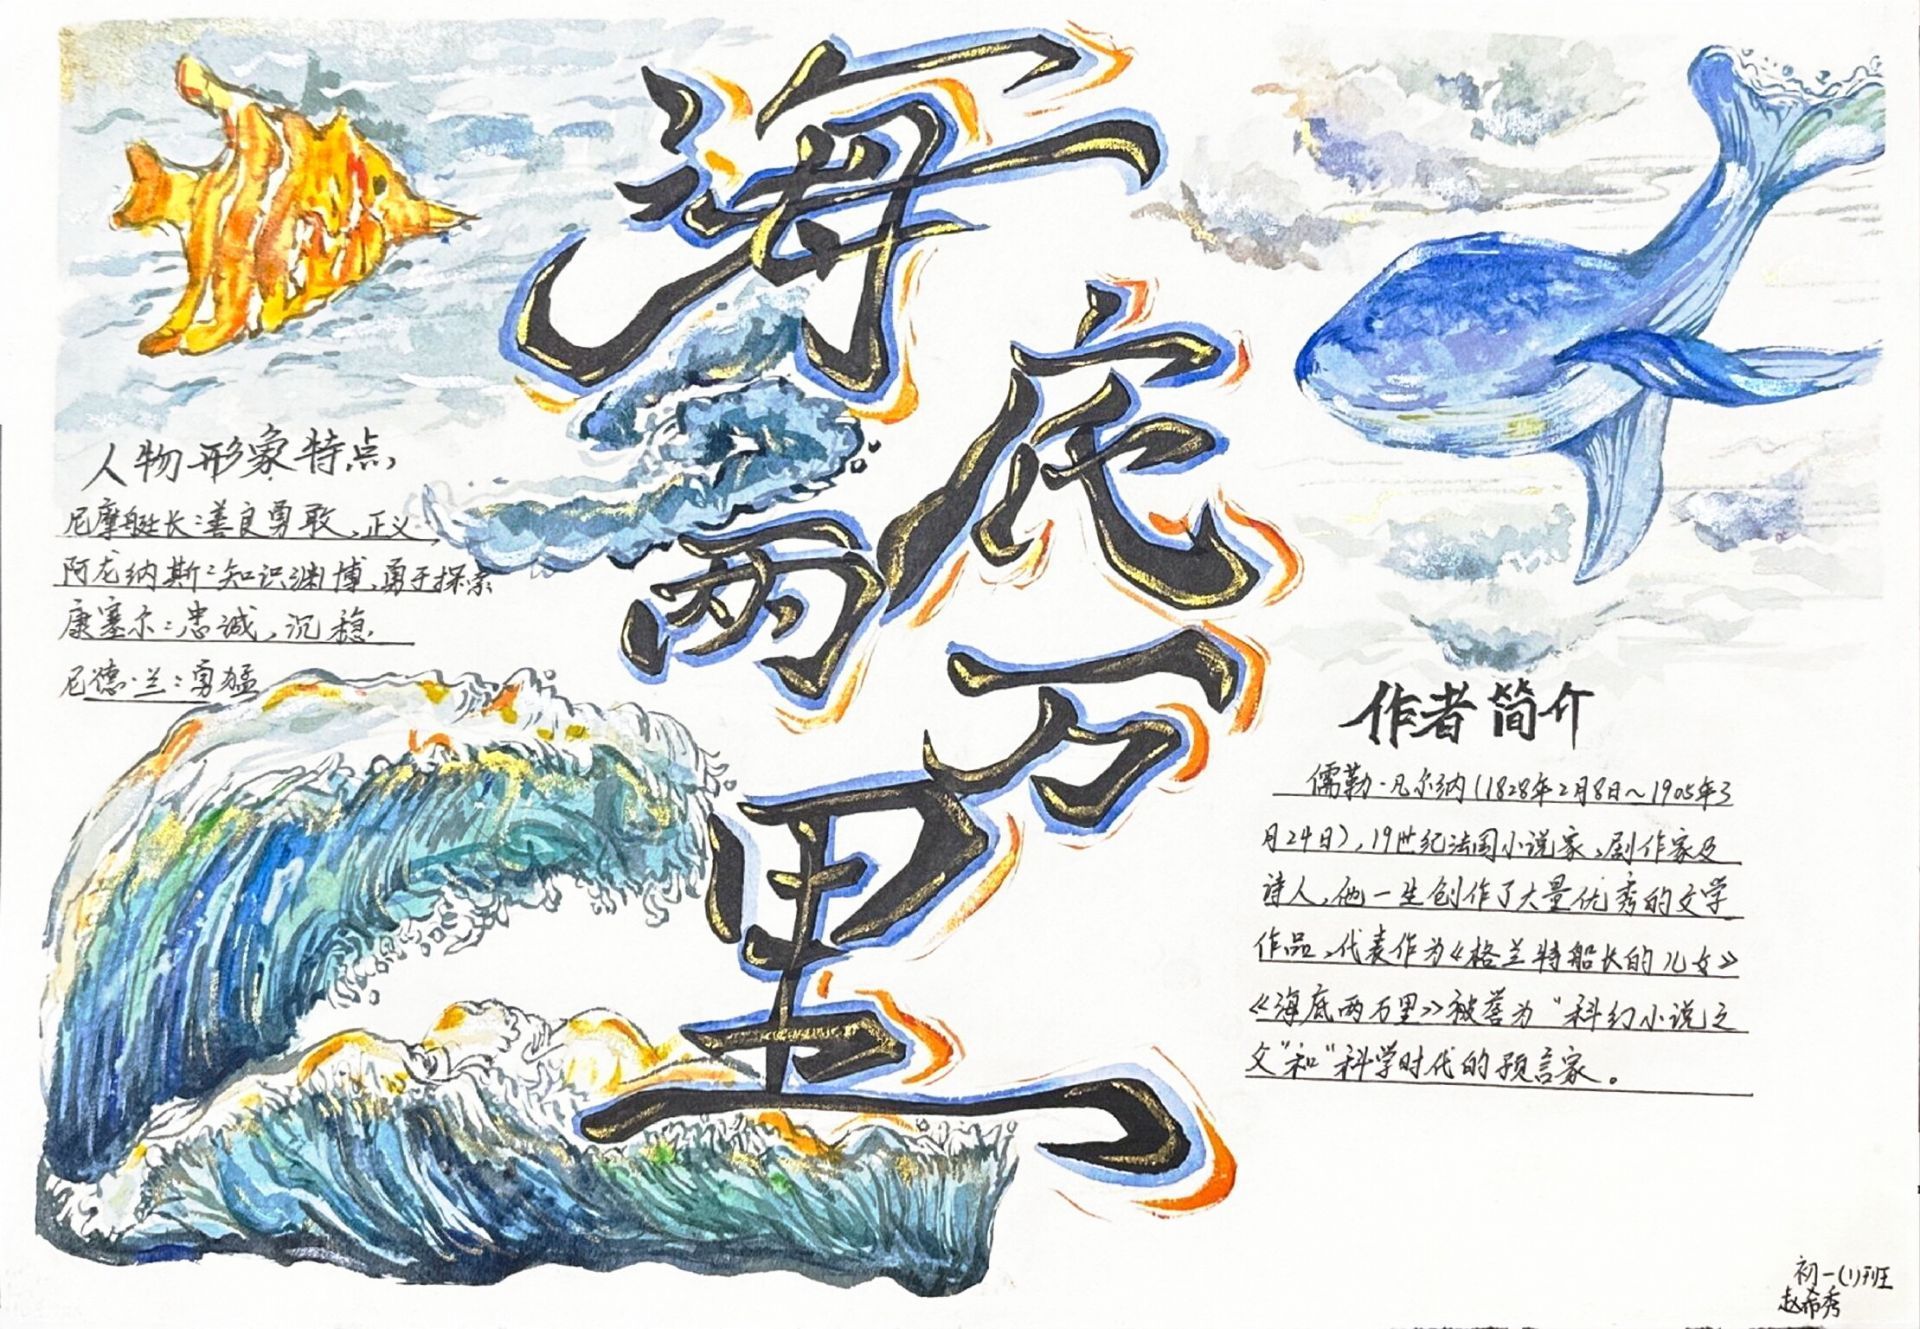 海底两万里
人物形象特点
尼摩艇长：善良勇敢、正义，
阿龙纳斯：知识渊博、勇于探索
康塞尔：忠诚，沉稳
尼德·兰：勇猛
作者简介
儒勒·凡尔纳（1828年2月8日～1905年3
月24日），19世纪法国小说家、剧作家及
诗人，他一生创作了大量优秀的文学
作品，代表作为《格兰特船长的儿女》
《海底两万里》被誉为“科幻小说之
父”和“科学时代的预言家。
初一（1）班
赵希秀